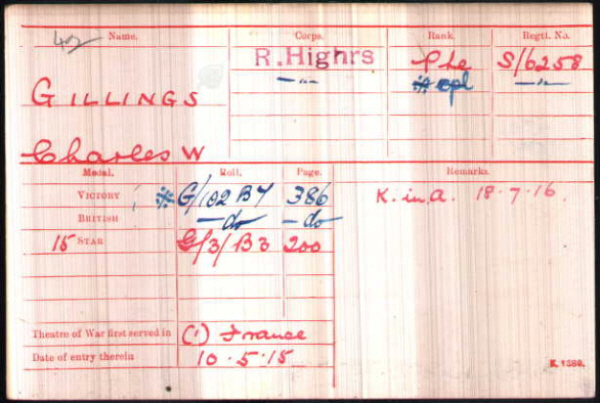 42 Name. Corps. Rank. Regtl. No.
R. Highrs Pte S/6258
GILLINGS —"— * cpl —"—
Charles W
Medal. Roll. Page. Remarks.
VICTORY * G/102 B7 386 K. in A. 18.7.16.
BRITISH —do —do
15 STAR G/3/B3 200
Theatre of War first served in (1) France
Date of entry therein 10.5.15
K. 1380.